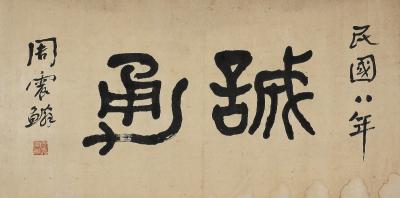 民國八年
誠勇
周震鱗